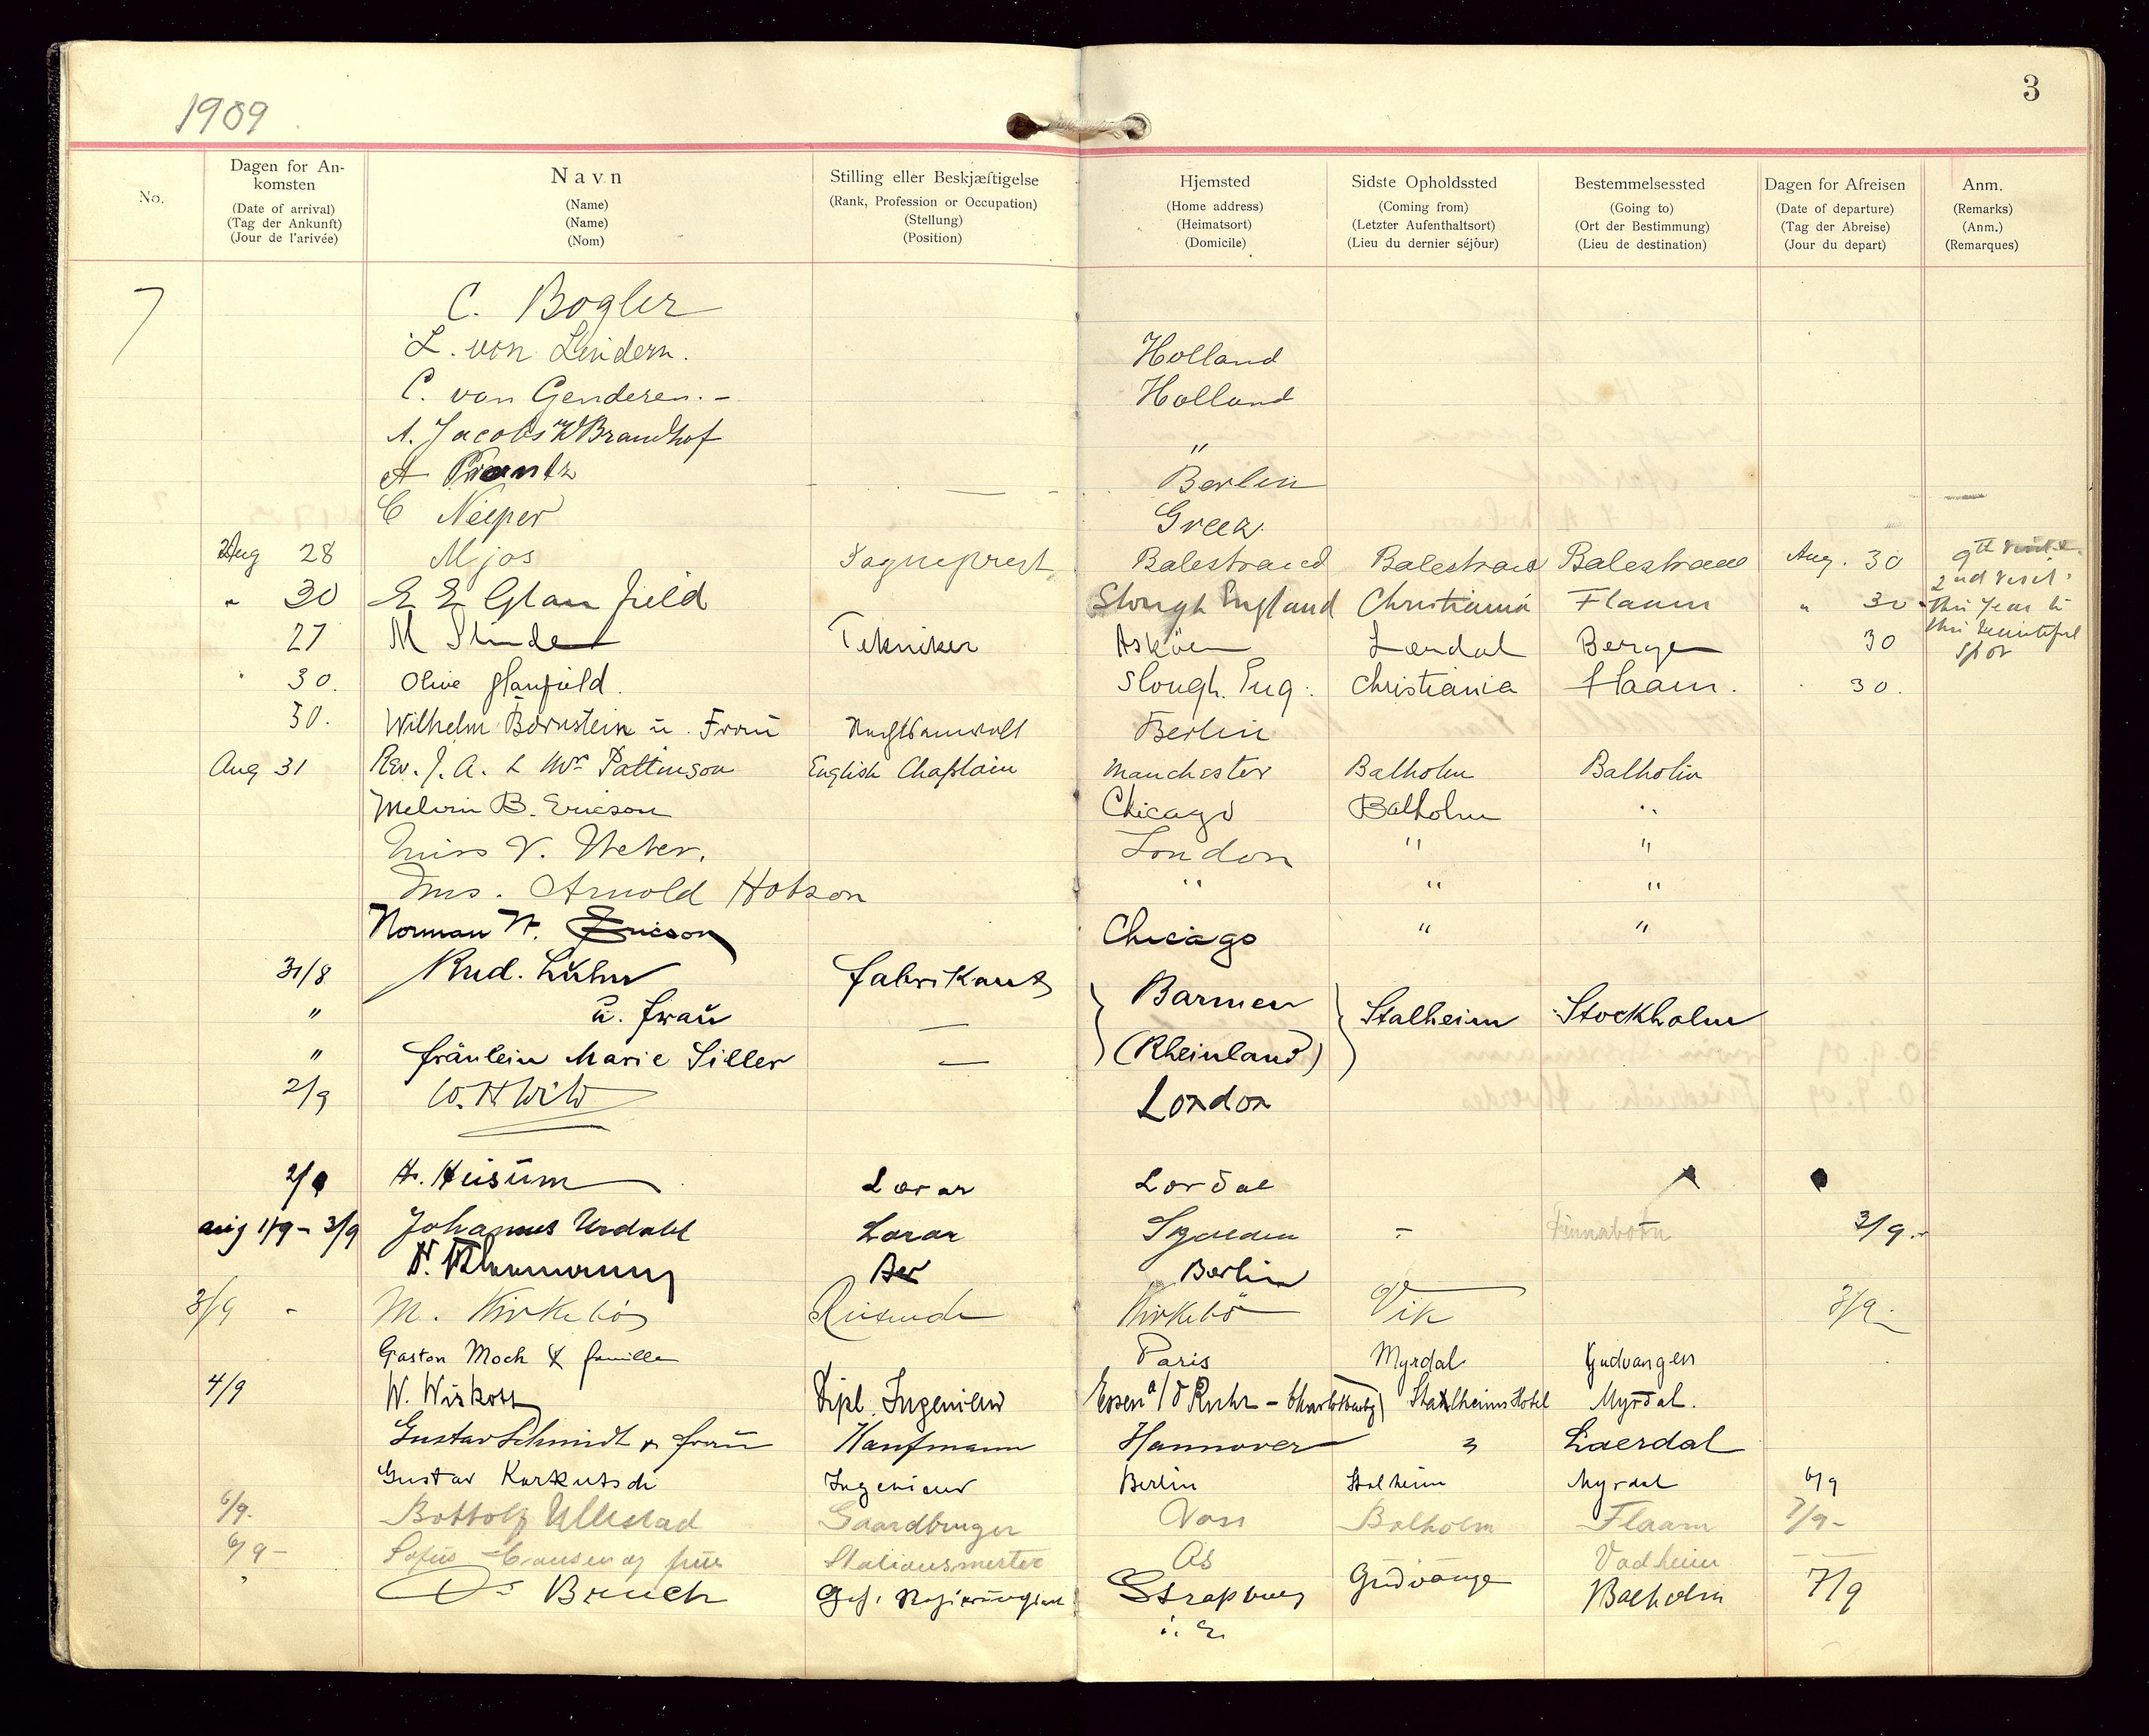 1909
3
No.
Dagen for An-
komsten
(Date of arrival)
(Tag der Ankunft)
(Jour de l'arivée)
Navn
(Name)
(Name)
(Nom)
Stilling eller Beskjæftigelse
(Rank, Profession or Occupation)
(Stellung)
(Position)
Hjemsted
(Home address)
(Heimatsort)
(Domicile)
Sidste Opholdssted
(Coming from)
(Letzter Aufenthaltsort)
(Lieu du dernier séjour)
Bestemmelsessted
(Going to)
(Ort der Bestimmung)
(Lieu de destination)
Dagen for Afreisen
(Date of departure)
(Tag der Abreise)
(Jour du depart)
Anm.
(Remarks)
(Anm.)
(Remarques)
C. Bogler
L. von Lindern. Holland
C. van Genderen. - Holland
A. Jacobs "
A Berlin
C Neeper Greek
Aug 28 Mjos Sogneprest Balestrand Balestrand Balestrand Aug. 30 9th
" 30 E E Glanfield Slough England Christiania Flaam " 30 2nd visit
this year to
this beautiful
spot
27 M Tekniker Askøen Lærdal Bergen 30
" 30. Olive Glanfield. Slough. Eng. Christiania Flaam. 30.
30. Wilhelm Bernstein u. Frau Rechtsanwalt Berlin
Aug 31 Rev. J. A. & Mrs Pattinson English Chaplain Manchester Balholm Balholm
Melvin B. Ericson Chicago Balholm "
Miss V. London " "
Mrs. Arnold Hobson " " "
Norman W. Ericson Chicago " "
31/8 Rud. Lühn Fabrikant Barmen Stalheim Stockholm
" u. Frau —
" Fräulein Marie Siller — (Rheinland)
2/9 W. H London
2/9 H. Husum Lærar Lærdal
aug 1/9 - 3/9 Johannes Urdahl Lærar Finnabotn 3/9.
Ber Berlin
3/9 - M. Kirkebö Reisende Kirkebö Vik 3/9.
Gaston Moch & famille Paris Myrdal Gudvangen
4/9 W. Wiskott Dipl. Ingenieur Essen a/d Ruhr - Charlottenburg Stahlheims Hotel Myrdal.
Gustav Schmidt & Frau Kaufmann Hannover " Laerdal
Gustav Karkutsch Ingenieur Berlin Stalheim Myrdal 6/9
6/9. Bottolf Ullestad Gaardbruger Voss Balholm Flaam 7/9 -
6/9 - Sofus Hansen og frue Stationsmester Ås Vadheim
" Dr Bruch Geh. Regierungsrat Strapburg Gudvangen Balholm 7/9
i. E.